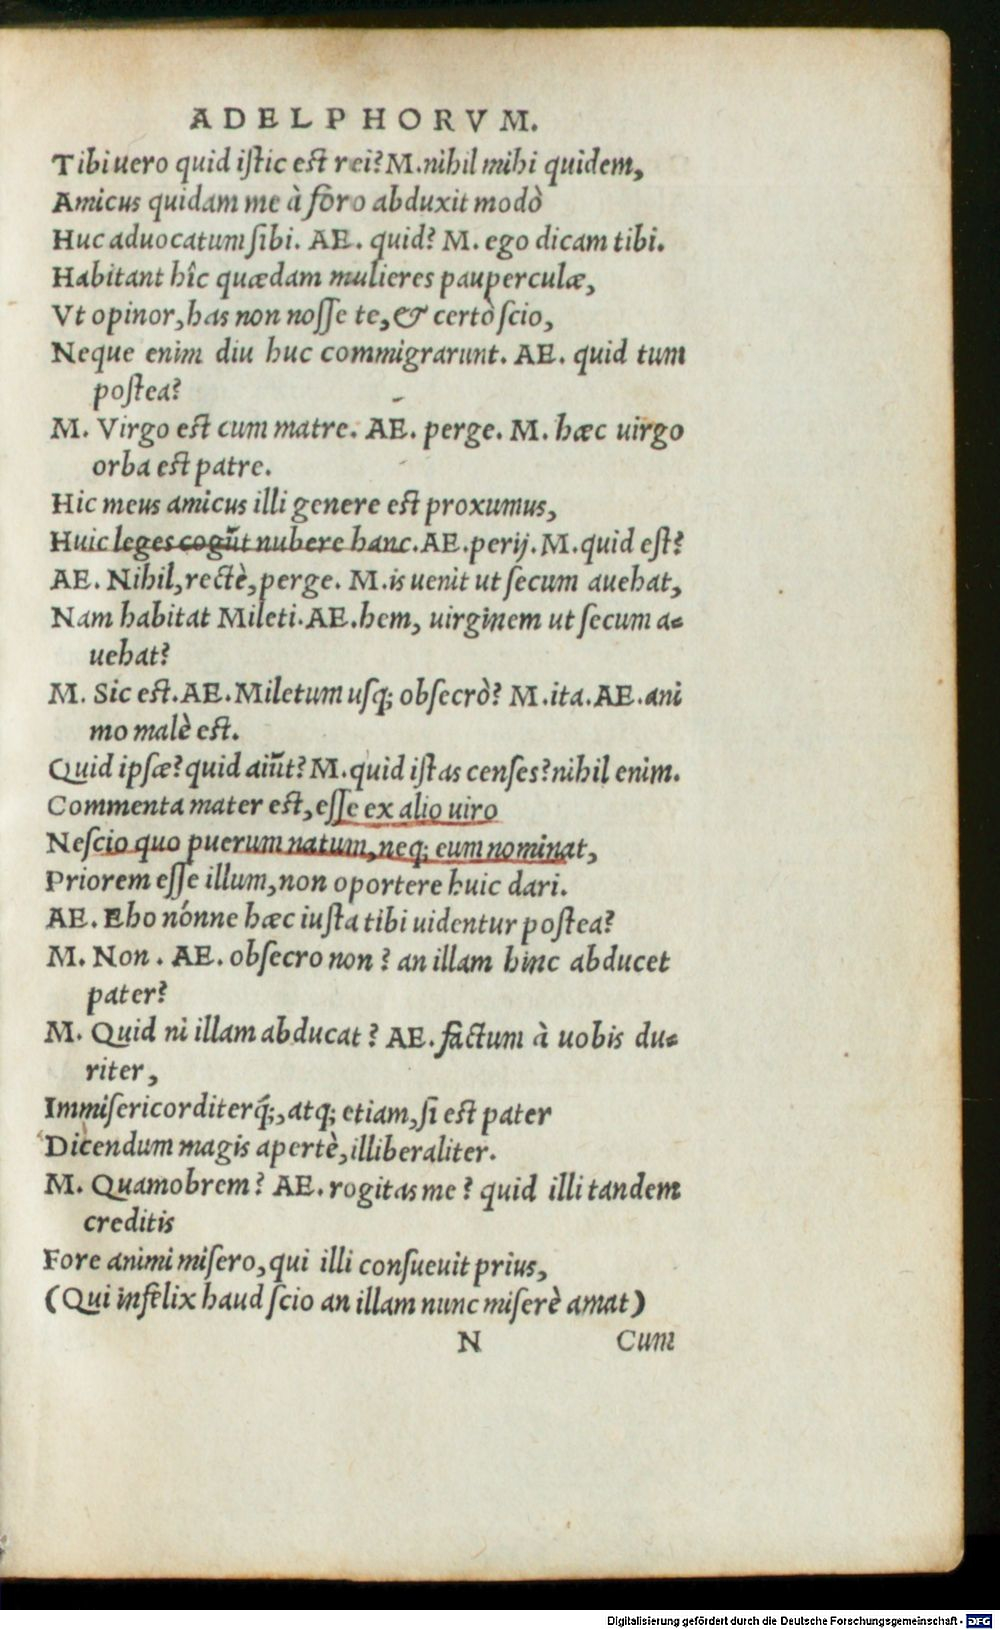 ADELPHORVM.
Tibi uero quid iſtic eſt rei? M. nihil mihi quidem,
Amicus quidam me à foro abduxit modò
Huc aduocatum ſibi. AE. quid? M. ego dicam tibi.
Habitant hîc quædam mulieres pauperculæ,
Vt opinor, has non noſſe te, & certò ſcio,
Neque enim diu huc commigrarunt. AE. quid tum
poſtea?
M. Virgo eſt cum matre. AE. perge. M. hæc uirgo
orba eſt patre.
Hic meus amicus illi genere eſt proxumus,
Huic leges cogũt nubere hanc. AE. perij. M. quid eſt?
AE. Nihil, rectè, perge. M. is uenit ut ſecum auehat,
Nam habitat Mileti. AE. hem, uirginem ut ſecum a-
uehat?
M. Sic eſt. AE. Miletum uſq; obſecrò? M. ita. AE. ani
mo malè eſt.
Quid ipſæ? quid aiũt? M. quid iſtas cenſes? nihil enim.
Commenta mater eſt, eſſe ex alio uiro
Neſcio quo puerum natum, neq; eum nominat,
Priorem eſſe illum, non oportere huic dari.
AE. Eho nónne hæc iuſta tibi uidentur poſtea?
M. Non. AE. obſecro non? an illam hinc abducet
pater?
M. Quid ni illam abducat? AE. factum à uobis du-
riter,
Immiſericorditerq́;, atq; etiam, ſi eſt pater
Dicendum magis apertè, illiberaliter.
M. Quamobrem? AE. rogitas me? quid illi tandem
creditis
Fore animi miſero, qui illi conſueuit prius,
(Qui infelix haud ſcio an illam nunc miſerè amat)
N Cum
Digitalisierung gefördert durch die Deutsche Forschungsgemeinschaft - DFG